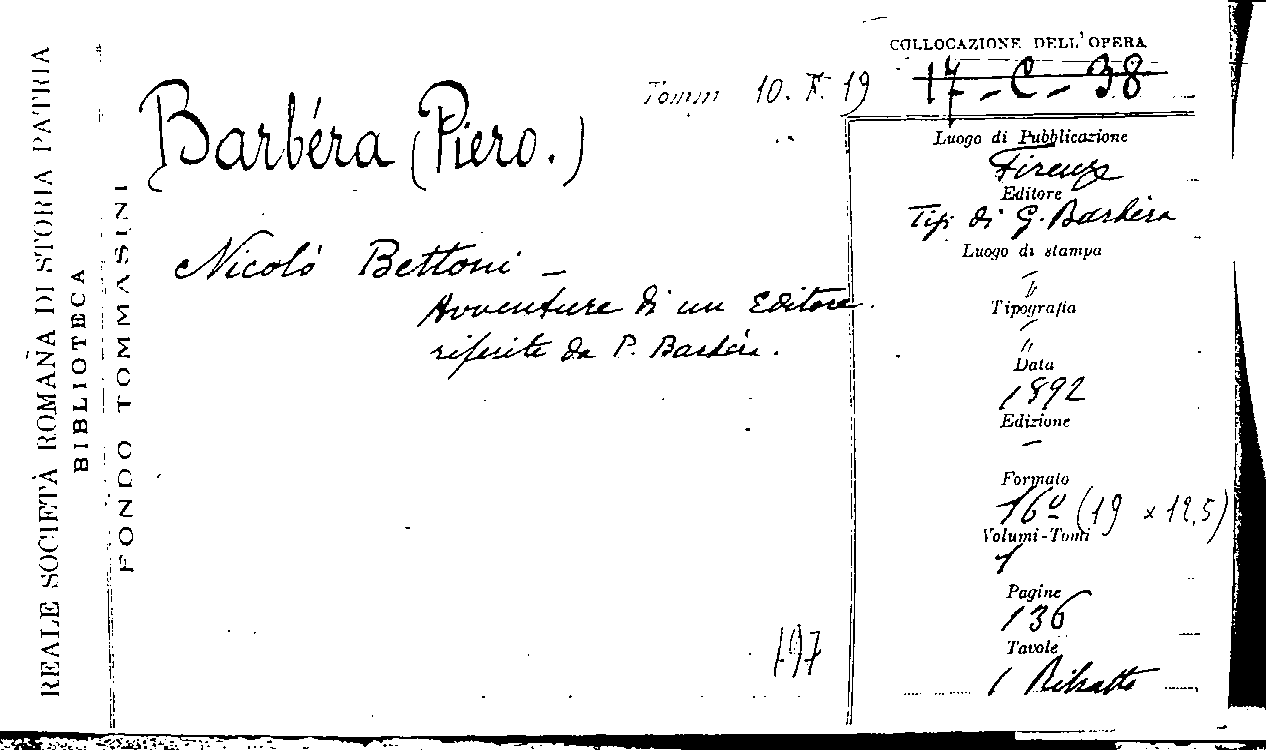 REALE SOCIETÀ ROMANA DI STORIA PATRIA
BIBLIOTECA
FONDO TOMMASINI
Tomm 10. F. 19
COLLOCAZIONE DELL'OPERA
17 - C - 38
Barbéra (Piero.)
Nicoló Bettoni -
Avventure di un Editore.
riferite da P. Barbéra.
197
Luogo di Pubblicazione
Firenze
Editore
Tip. di G. Barbèra
Luogo di stampa
"
Tipografia
"
Data
1892
Edizione
—
Formato
16º (19 x 12,5)
Volumi-Tomi
1
Pagine
136
Tavole
1 Ritratto